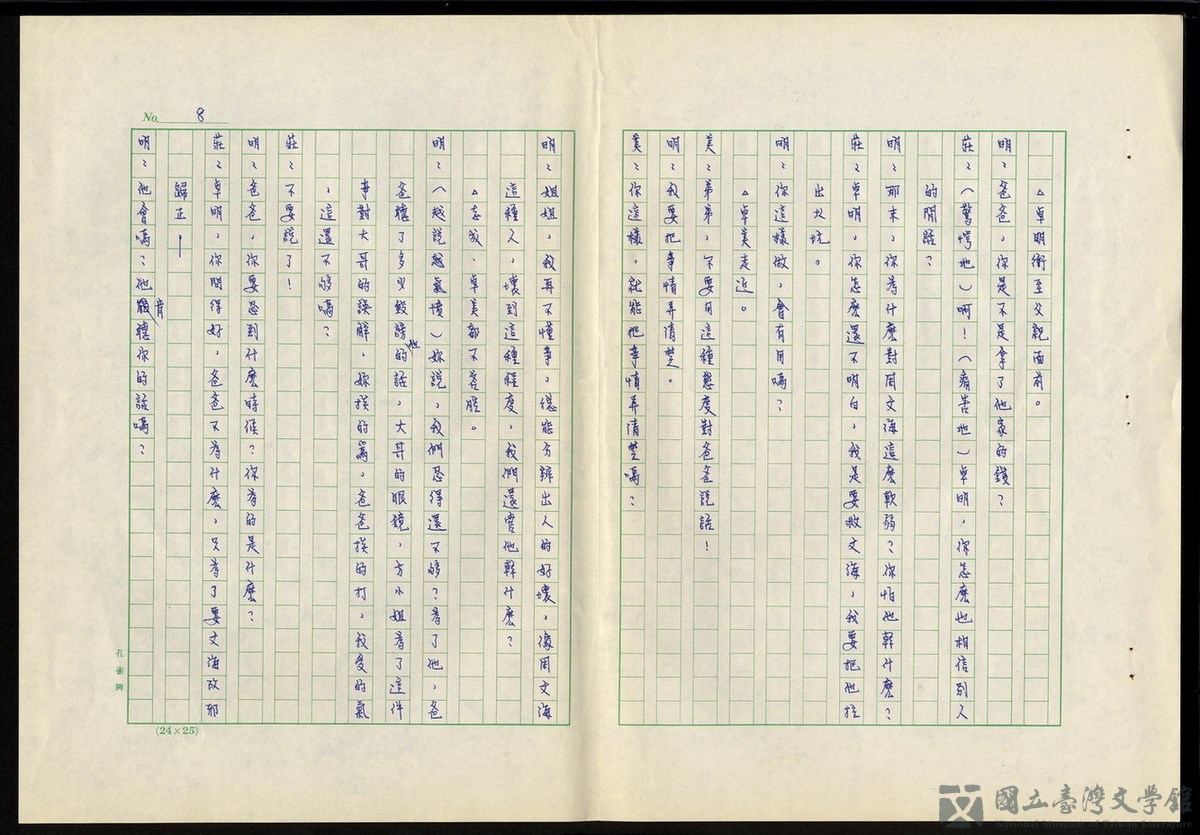 No. 8
△卓明衝至父親面前。
明：爸爸，你是不是拿了他家的錢？
莊：（驚愕地）啊！（痛苦地）卓明，你怎麼也相信別人
的閒話？
明：那末，你為什麼對周文海這麼軟弱？你怕他幹什麼？
莊：卓明，你怎麼還不明白，我是要救文海，我要把他拉
出火坑。
明：你這樣做，會有用嗎？
△卓美走近。
美：弟弟，不要用這種態度對爸爸說話！
明：我要把事情弄清楚。
美：你這樣，就能把事情弄清楚嗎？
明：姐姐，我再不懂事，總能分辨出人的好壞，像周文海
這種人，壞到這種程度，我們還管他幹什麼？
△志成、卓美都不答腔。
明：（越說越氣憤）妳說，我們忍得還不夠？為了他，爸
爸聽了多少毀謗他的話，大哥的眼鏡，方小姐為了這件
事對大哥的誤解，妳挨的罵，爸爸挨的打，我受的氣
，這還不夠嗎？
莊：不要說了！
明：爸爸，你要忍到什麼時候？你為的是什麼？
莊：卓明，你問得好，爸爸不為什麼，只為了要文海改邪
歸正—
明：他會嗎？他肯聽你的話嗎？
孔雀牌
(24×25)
國立臺灣文學館
National Museum of Taiwan Literature